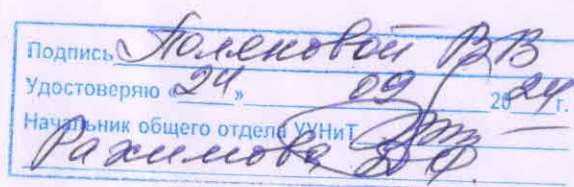 Подпись Поляковой В В
Удостоверяю «24» 09 2024 г.
Начальник общего отдела УУНиТ
Рахимова